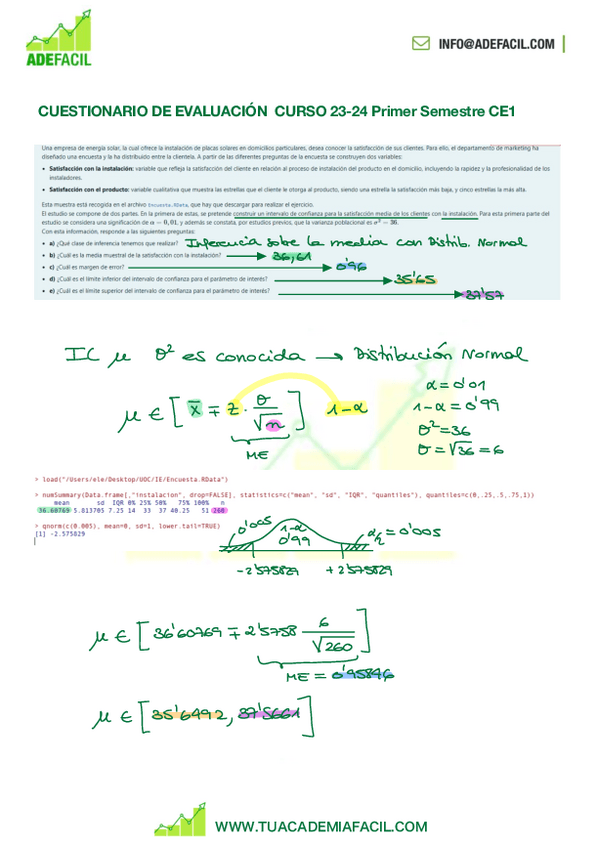 ADEFACIL
INFO@ADEFACIL.COM
CUESTIONARIO DE EVALUACIÓN CURSO 23-24 Primer Semestre CE1
Una empresa de energía solar, la cual ofrece la instalación de placas solares en domicilios particulares, desea conocer la satisfacción de sus clientes. Para ello, el departamento de marketing ha
diseñado una encuesta y la ha distribuido entre la clientela. A partir de las diferentes preguntas de la encuesta se construyen dos variables:
• Satisfacción con la instalación: variable que refleja la satisfacción del cliente en relación al proceso de instalación del producto en el domicilio, incluyendo la rapidez y la profesionalidad de los
instaladores.
• Satisfacción con el producto: variable cualitativa que muestra las estrellas que el cliente le otorga al producto, siendo una estrella la satisfacción más baja, y cinco estrellas la más alta.
Esta muestra está recogida en el archivo Encuesta.RData, que hay que descargar para realizar el ejercicio.
El estudio se compone de dos partes. En la primera de estas, se pretende construir un intervalo de confianza para la satisfacción media de los clientes con la instalación. Para esta primera parte del
estudio se considera una significación de α = 0,01, y además se constata, por estudios previos, que la varianza poblacional es σ² = 36.
Con esta información, responde a las siguientes preguntas:
• a) ¿Qué clase de inferencia tenemos que realizar? Inferencia sobre la media con Distrib. Normal
• b) ¿Cuál es la media muestral de la satisfacción con la instalación? → 36,61
• c) ¿Cuál es margen de error? → 0'96
• d) ¿Cuál es el límite inferior del intervalo de confianza para el parámetro de interés? → 35'65
• e) ¿Cuál es el límite superior del intervalo de confianza para el parámetro de interés? → 37'57
IC μ σ² es conocida → Distribución Normal
α = 0'01
μ ∈ [x̄ ∓ z · σ/√n] 1-α
1-α = 0'99
σ² = 36
ME
σ = √36 = 6
> load("/Users/ele/Desktop/UOC/IE/Encuesta.RData")
> numSummary(Data.frame[,"instalacion", drop=FALSE], statistics=c("mean", "sd", "IQR", "quantiles"), quantiles=c(0,.25,.5,.75,1))
mean sd IQR 0% 25% 50% 75% 100% n
36.60769 5.813705 7.25 14 33 37 40.25 51 260
> qnorm(c(0.005), mean=0, sd=1, lower.tail=TRUE)
[1] -2.575829
0'005 1-α 0'99 α/2 = 0'005
-2'575829 +2'575829
μ ∈ [36'60769 ∓ 2'5758 6/√260]
ME = 0'95846
μ ∈ [35'6492, 37'5661]
WWW.TUACADEMIAFACIL.COM